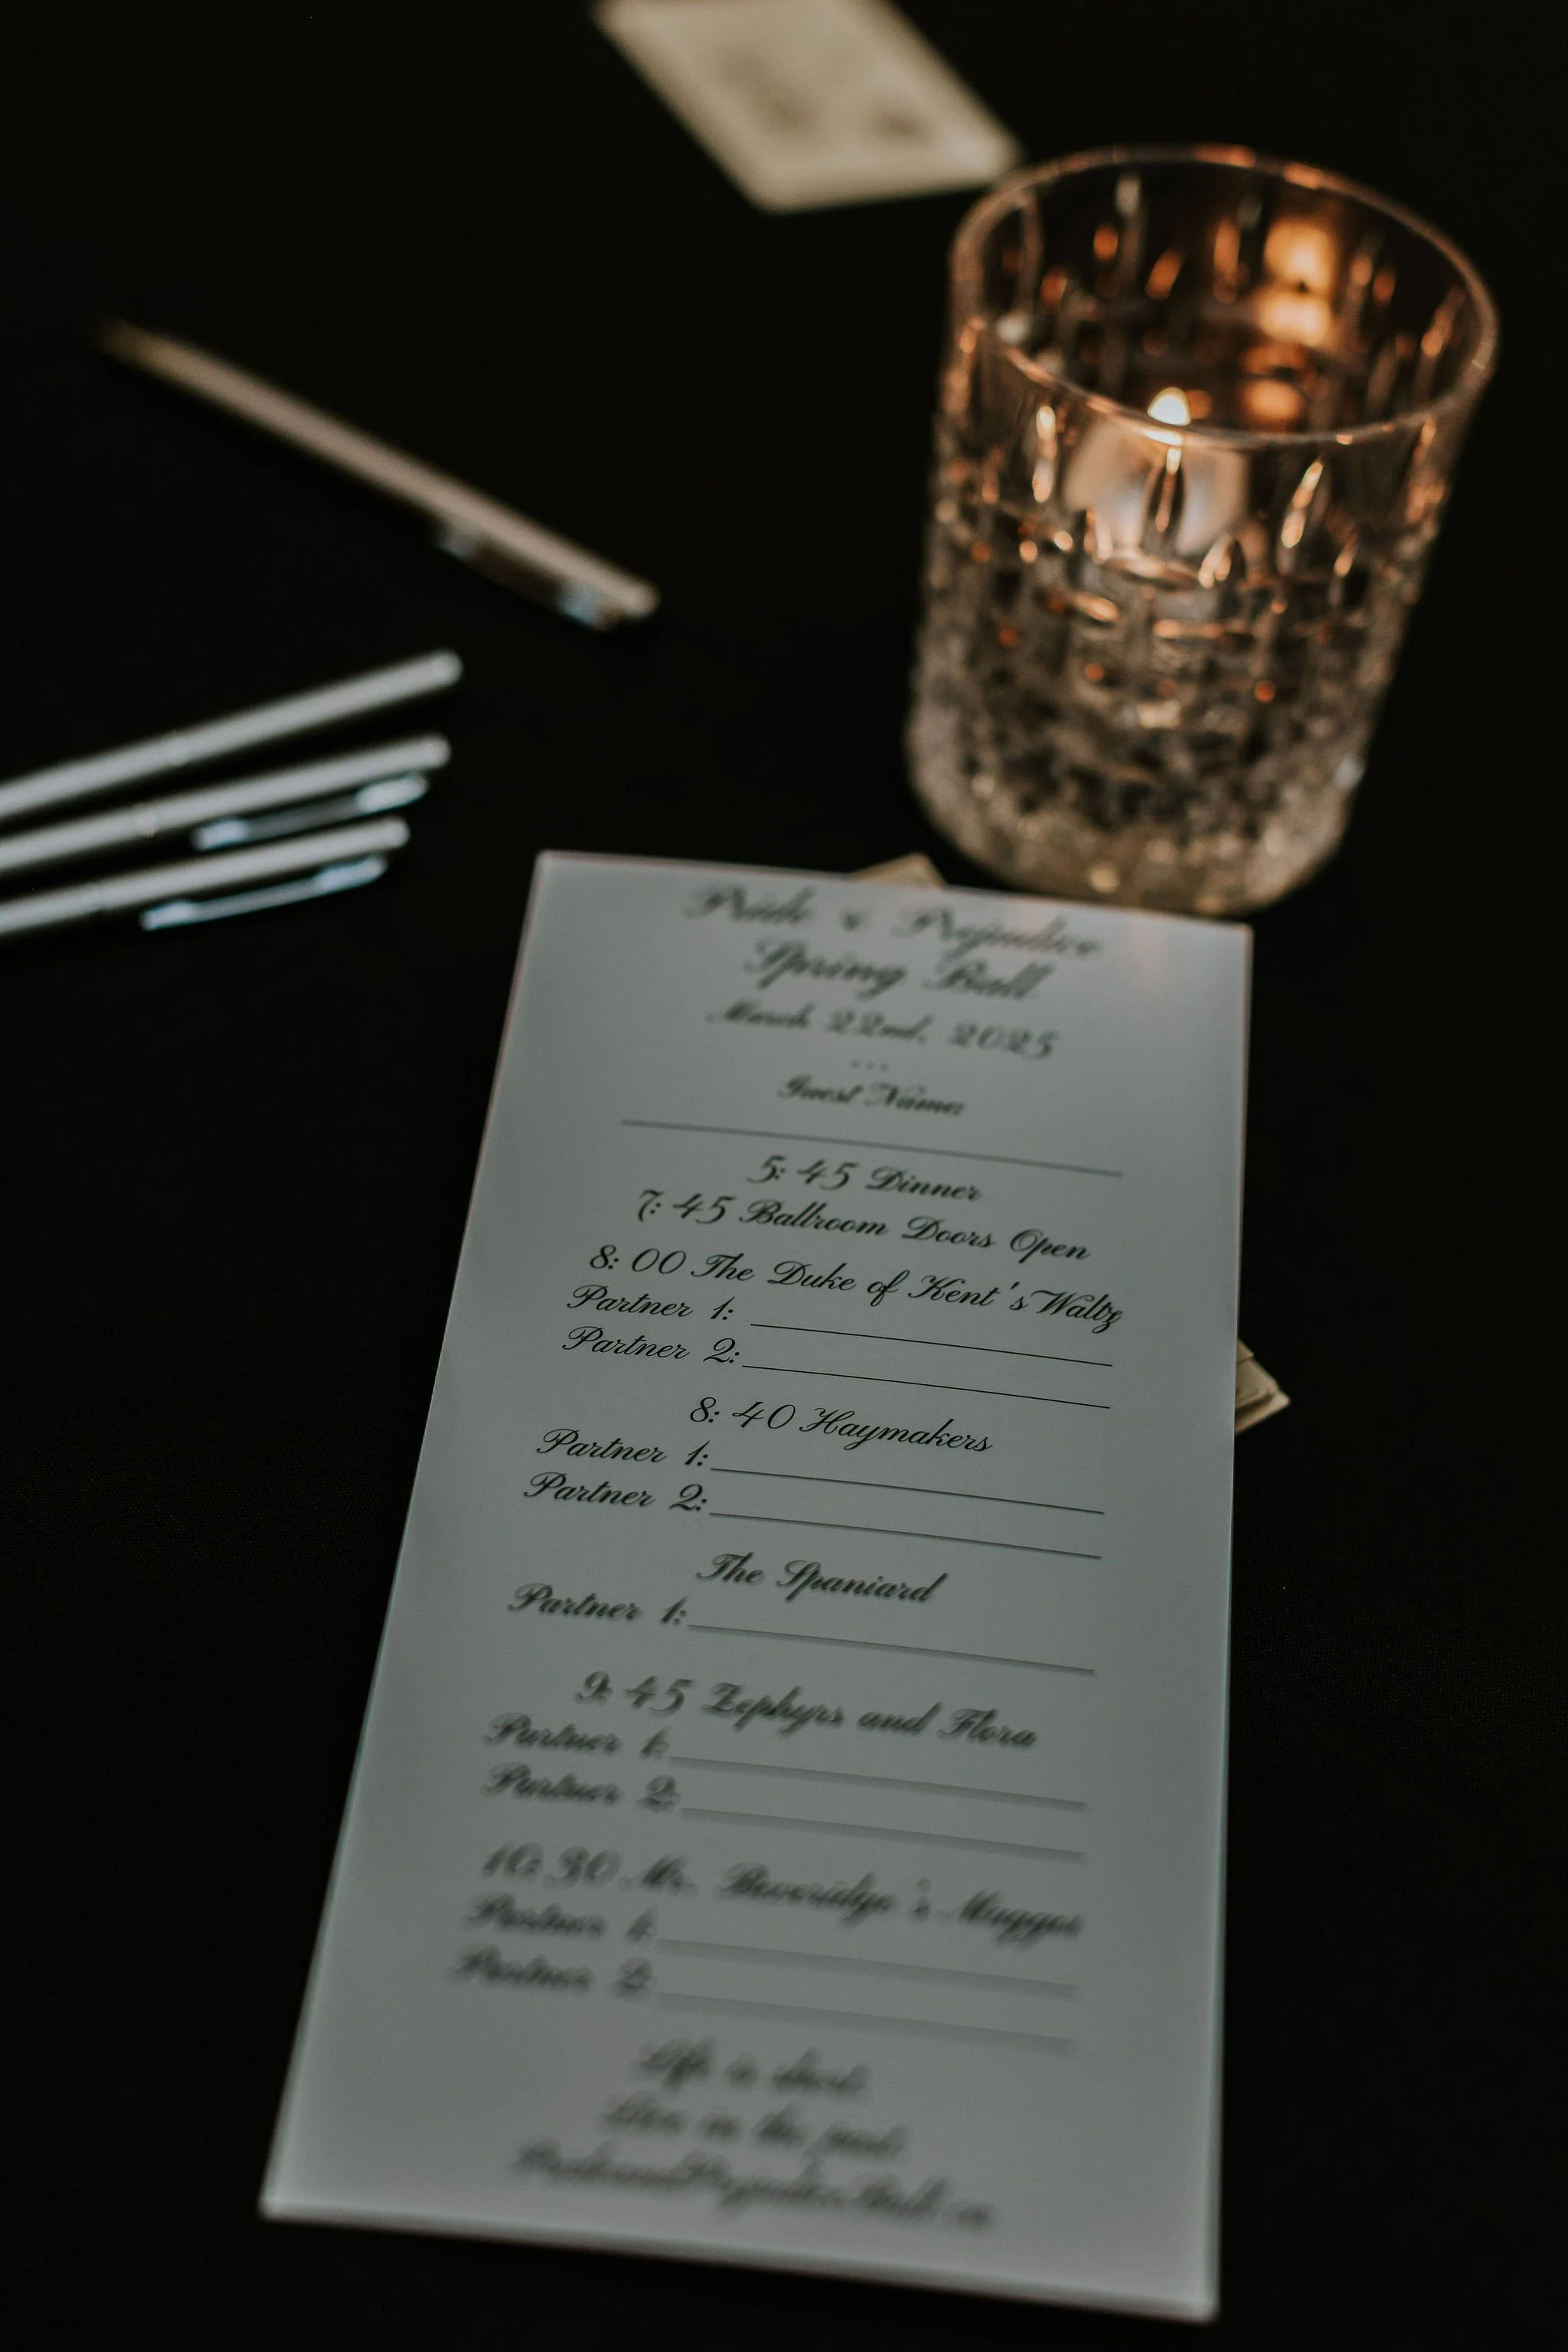 Pride & Prejudice
Spring Ball
March 22nd, 2025
...
Guest Name:
5:45 Dinner
7:45 Ballroom Doors Open
8:00 The Duke of Kent's Waltz
Partner 1:
Partner 2:
8:40 Haymakers
Partner 1:
Partner 2:
The Spaniard
Partner 1:
9:45 Zephyrs and Flora
Partner 1:
Partner 2:
10:30 Mr. Beveridge's Maggot
Partner 1:
Partner 2:
Life is short.
Live in the past.